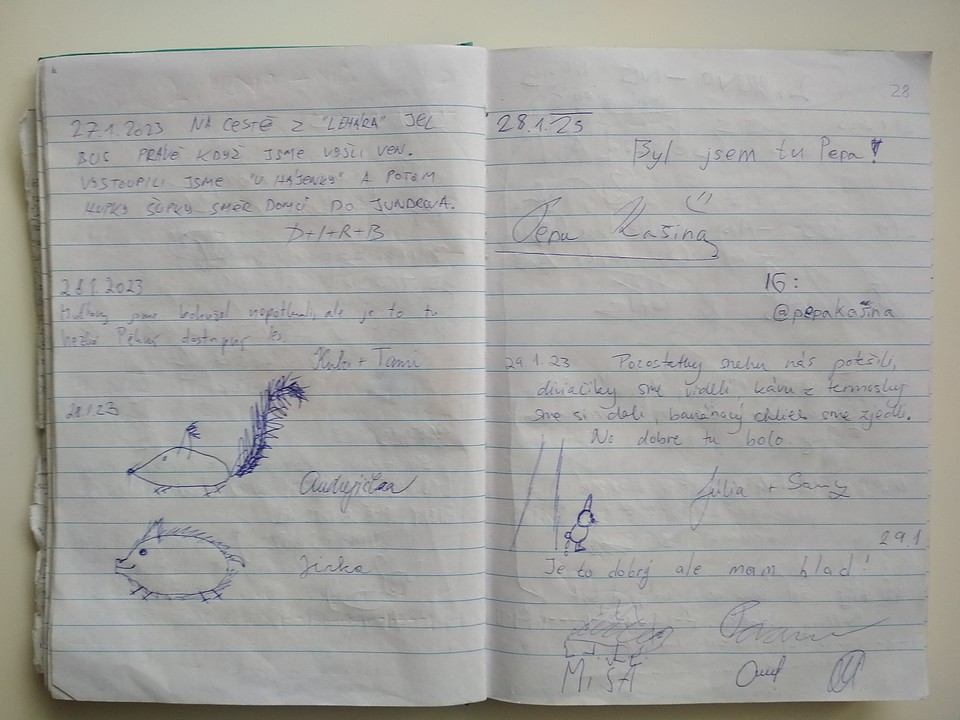 27.1.2023 NA CESTĚ Z "LEHÁRA" JEL
BUS PRÁVĚ KDYŽ JSME VYŠLI VEN.
VYSTOUPILI JSME "U HÁJENKY" A POTOM
HUPKY ŠUPKY SMĚR DOMŮ DO JUNDROVA.
D+I+R+B
28.1.2023
jsme bohužel nepotkali, ale je to tu
hezké Pěkný les.
+ Tomi
28.1.23
Jirka
28
28.1.23
Byl jsem tu Pepa!
Pepa Kašina
IG:
@pepakašina
29.1.23 Pozostatky snehu nás potešili,
diviačiky sme videli, kávu z termosky
sme si dali, banánový chlieb sme zjedli.
No dobre tu bolo.
Júlia + Samy
29.1
Je to dobrý ale mam hlad!
MIŠA